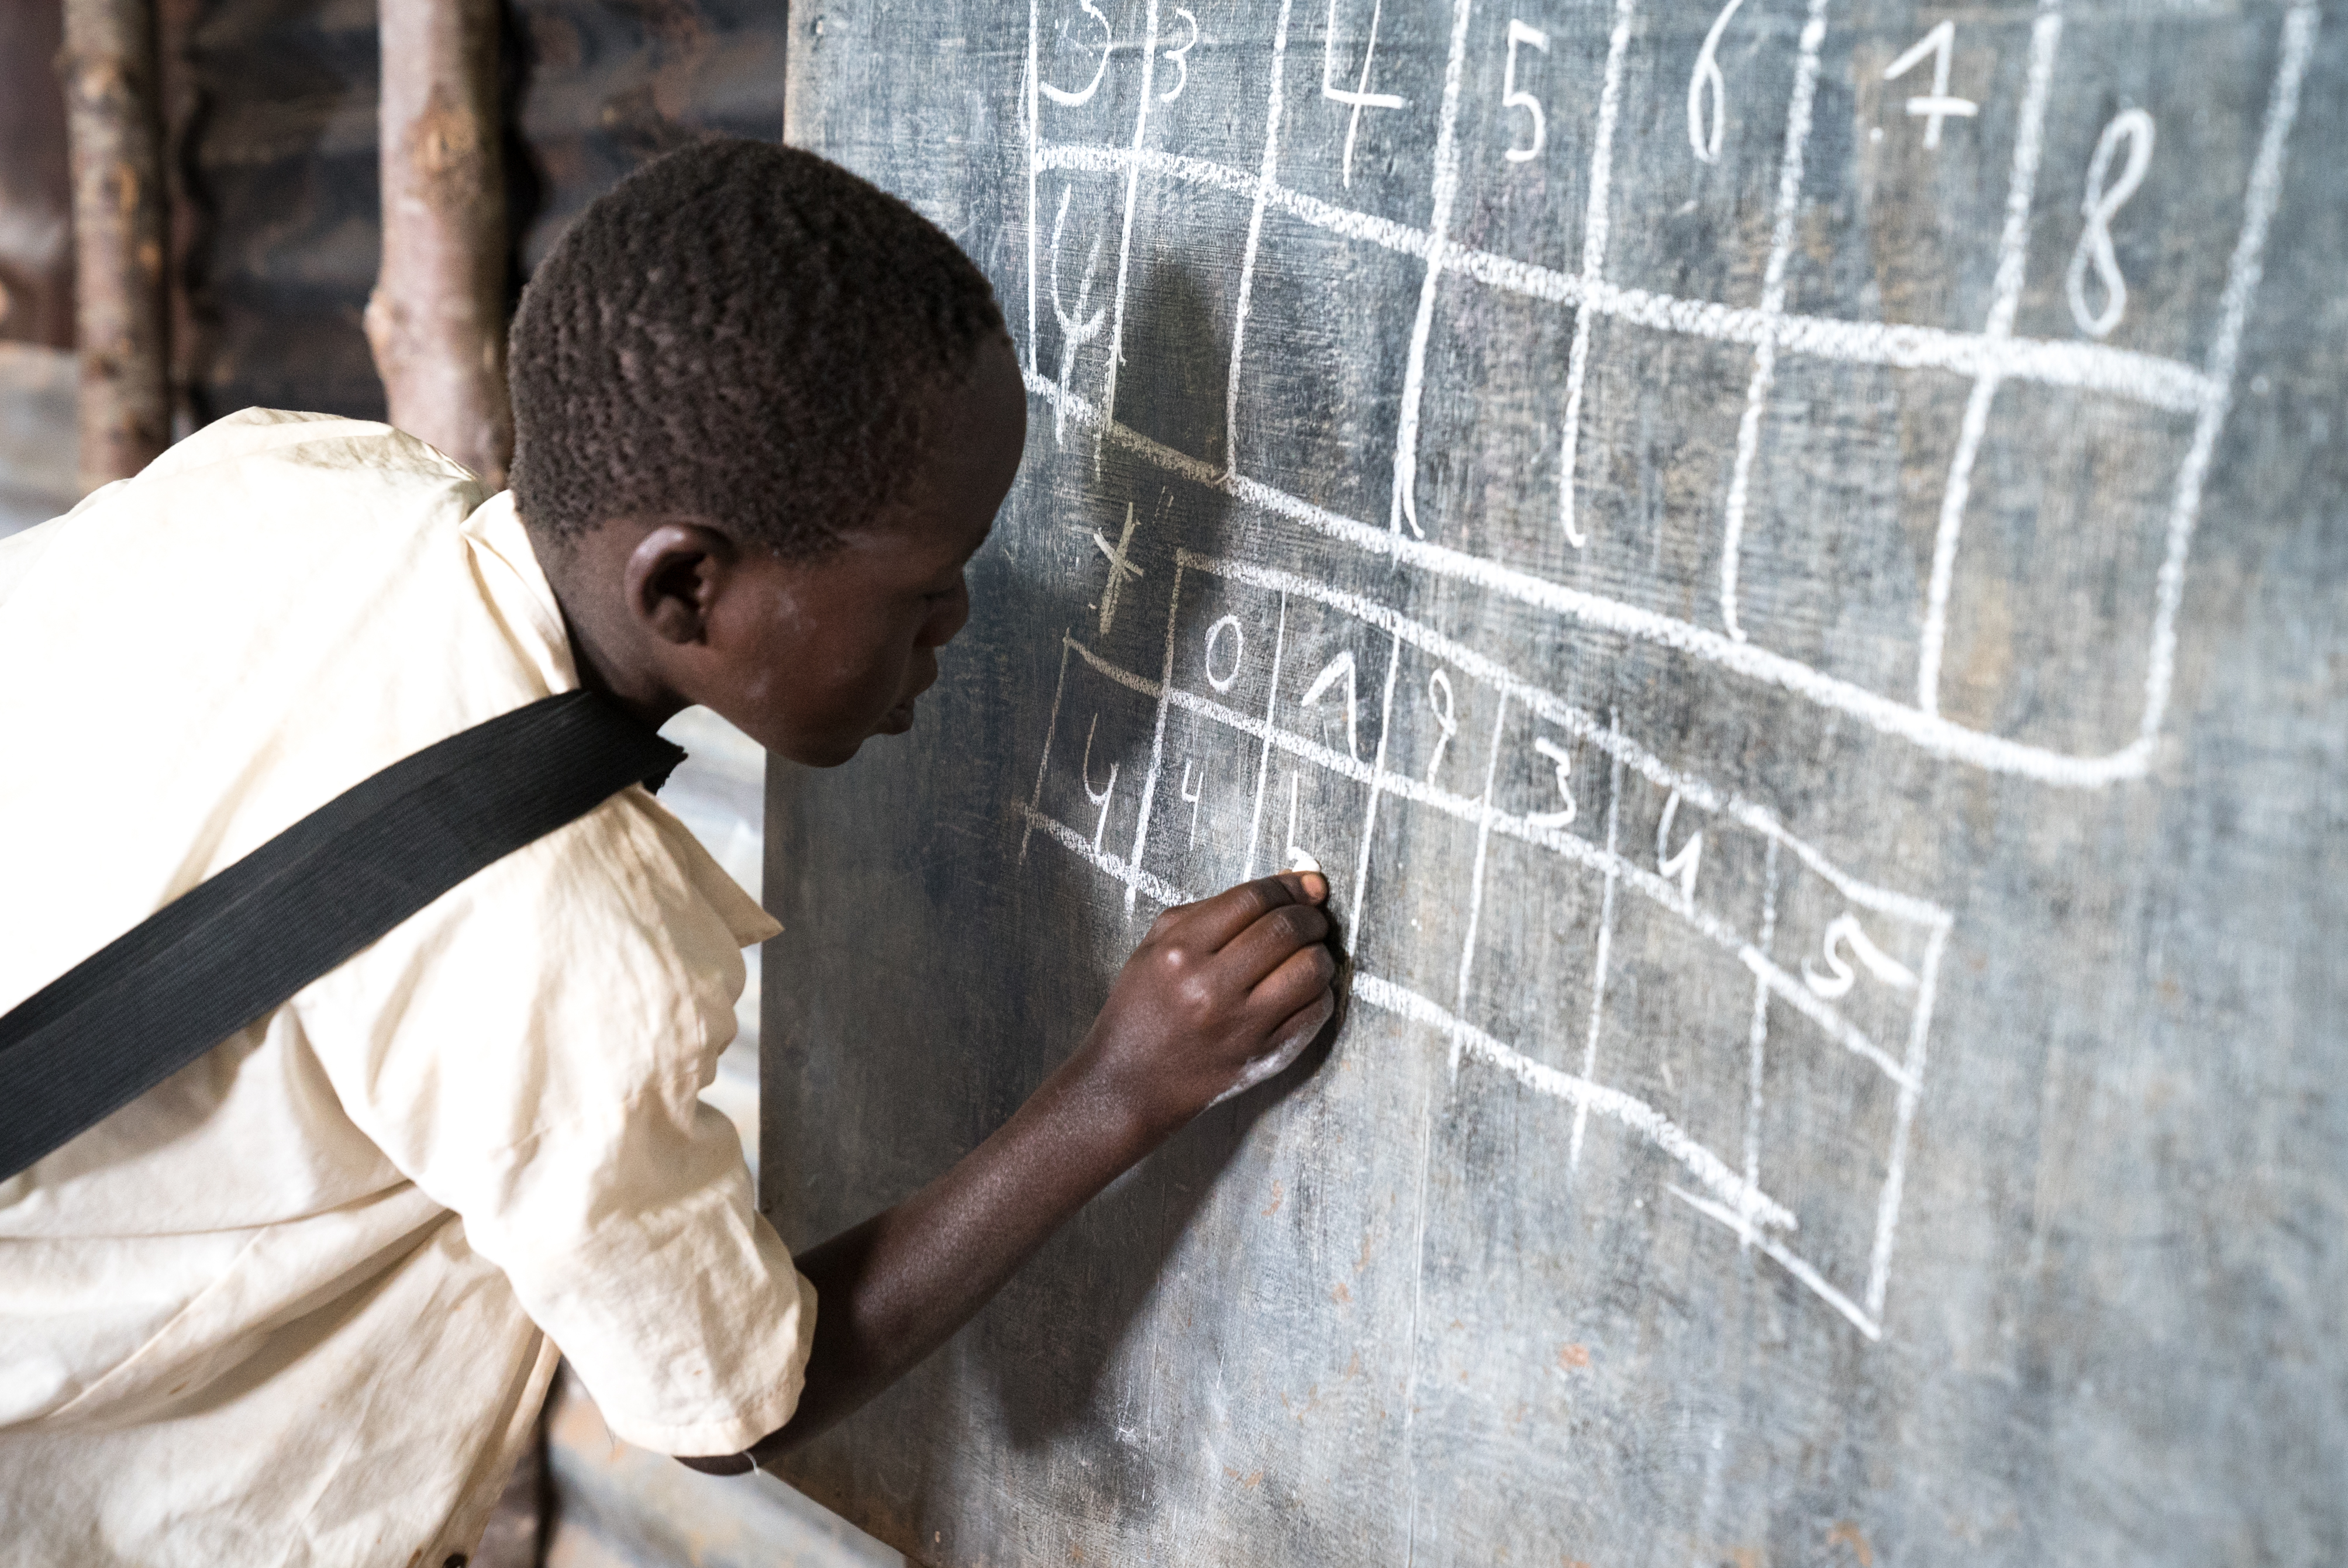 3 3 4 5 6 7 8
4
+
0 1 2 3 4 5
4 4